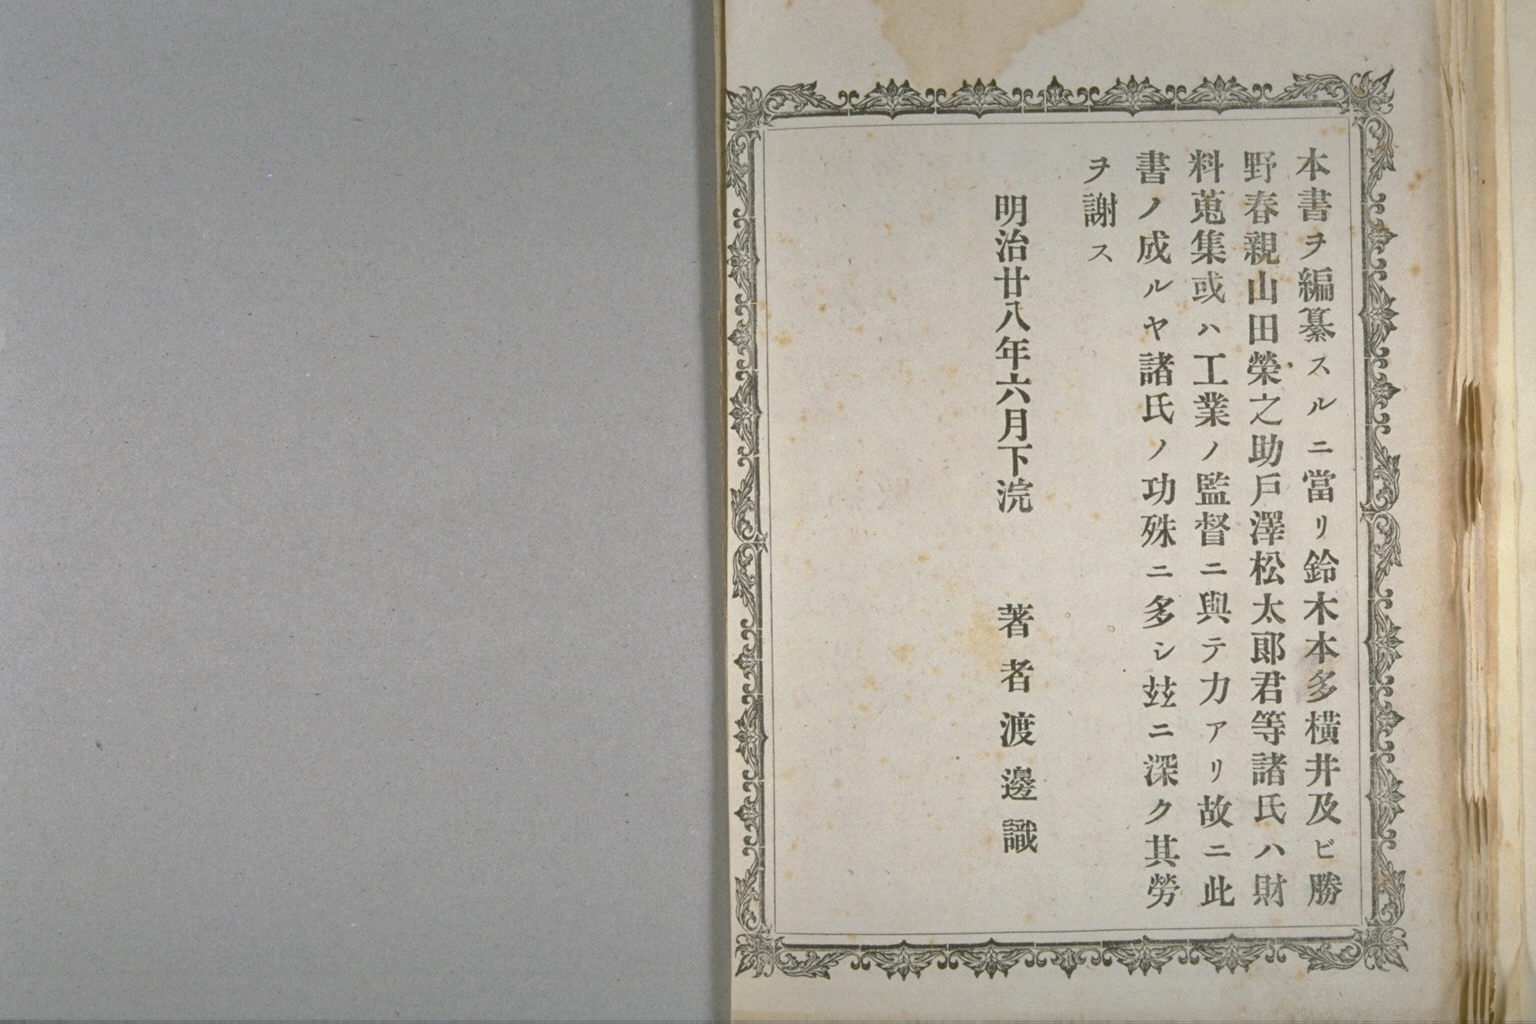 本書ヲ編纂スルニ當リ鈴木本多橫井及ビ勝
野春親山田榮之助戶澤松太郞君等諸氏ハ財
料蒐集或ハ工業ノ監督ニ與テ力アリ故ニ此
書ノ成ルヤ諸氏ノ功殊ニ多シ玆ニ深ク其勞
ヲ謝ス
明治廿八年六月下浣 著者渡邊識